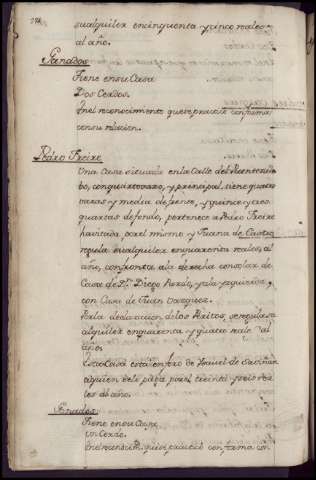 su alquiler en cinquenta y cinco reales
al año.
Ganados
Tiene en su Casa
Dos Cerdos.
En el reconocimiento que se practicó conforma
con su relacion.
Pedro Freire
Una Casa situada en la Calle del
bo, con quarto vajo, y principal, tiene quatro
varas y media de frente, y quince y tres
quartas de fondo, pertenece a Pedro Freire
havitada, por el mismo y Juana de Castro
regula su alquiler en quarenta reales, al
año, confronta a la derecha con solar de
Casa de Dn. Diego Pardo, y a la izquierda
con Casa de Juan Vazquez.
Por la declaracion de los Peritos, se regula su
alquiler en quarenta y quatro reales al
año.
Esta Casa esta en foro de de
a quien se le paga por el treinta y seis rea
les al año.
Ganados
Tiene en su Casa
Un Cerdo.
En el reconocim.to que se practicó conforma con